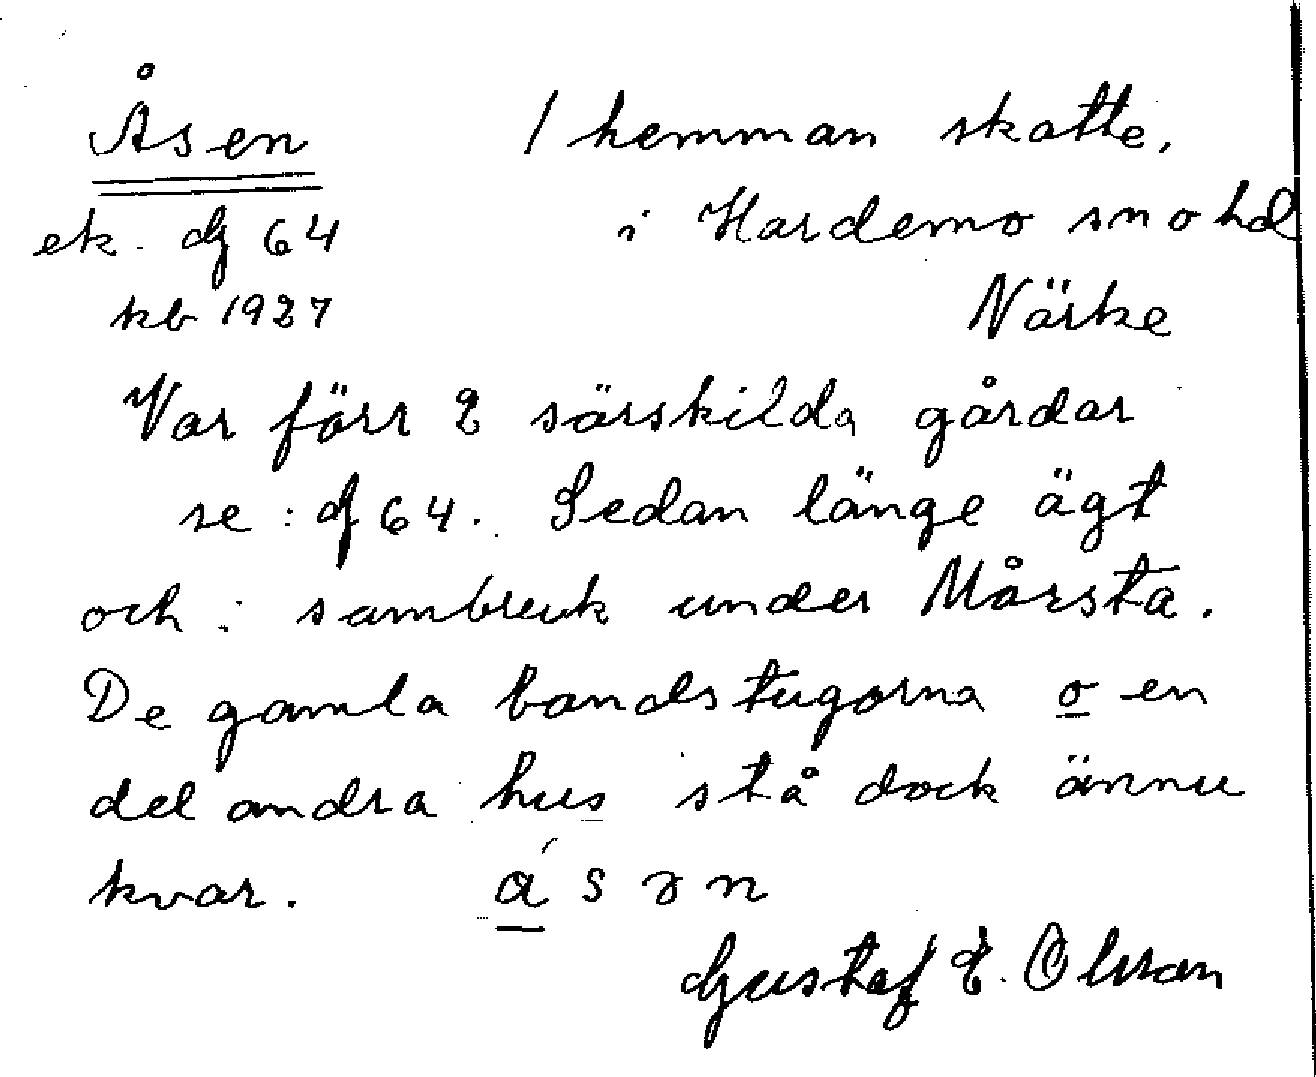 Åsen 1 hemman skatte,
ek. dj 64 i Hardemo sn o hd
kb 1927 Närke
Var förr 2 särskilda gårdar
se: dj 64. Sedan länge ägt
och i sambruk under Mårsta.
De gamla bondstugorna o en
del andra hus stå dock ännu
kvar. ásən
Gustaf E. Olsson